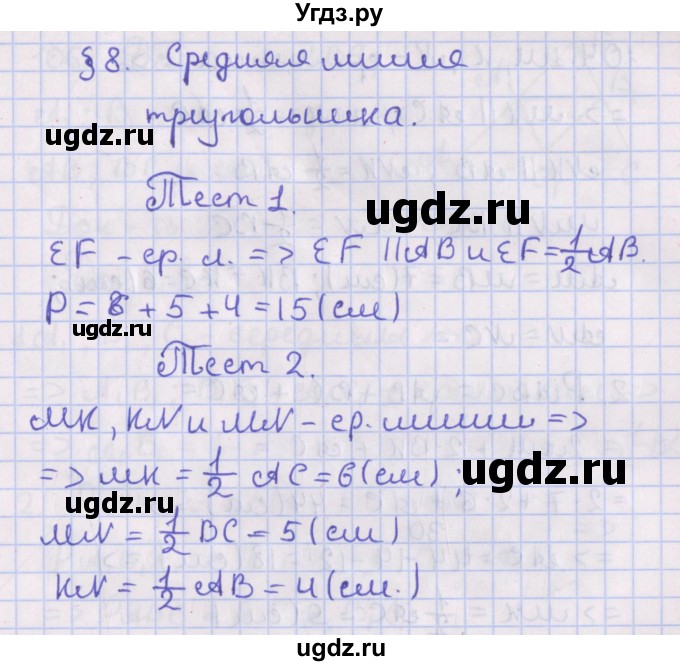 Угдз.ру
§ 8. Средняя линия
треугольника.
ugdz.ru
ugdz.ru
Тест 1.
EF - ср. л. => EF || AB и EF = 1/2 AB.
P = 6 + 5 + 4 = 15 (см)
ugdz.ru
Тест 2.
MK, KN и MN - ср. линии =>
=> MK = 1/2 AC = 6 (см);
ugdz.ru
ugdz.ru
MN = 1/2 BC = 5 (см)
KN = 1/2 AB = 4 (см.)
ugdz.ru
ugdz.ru